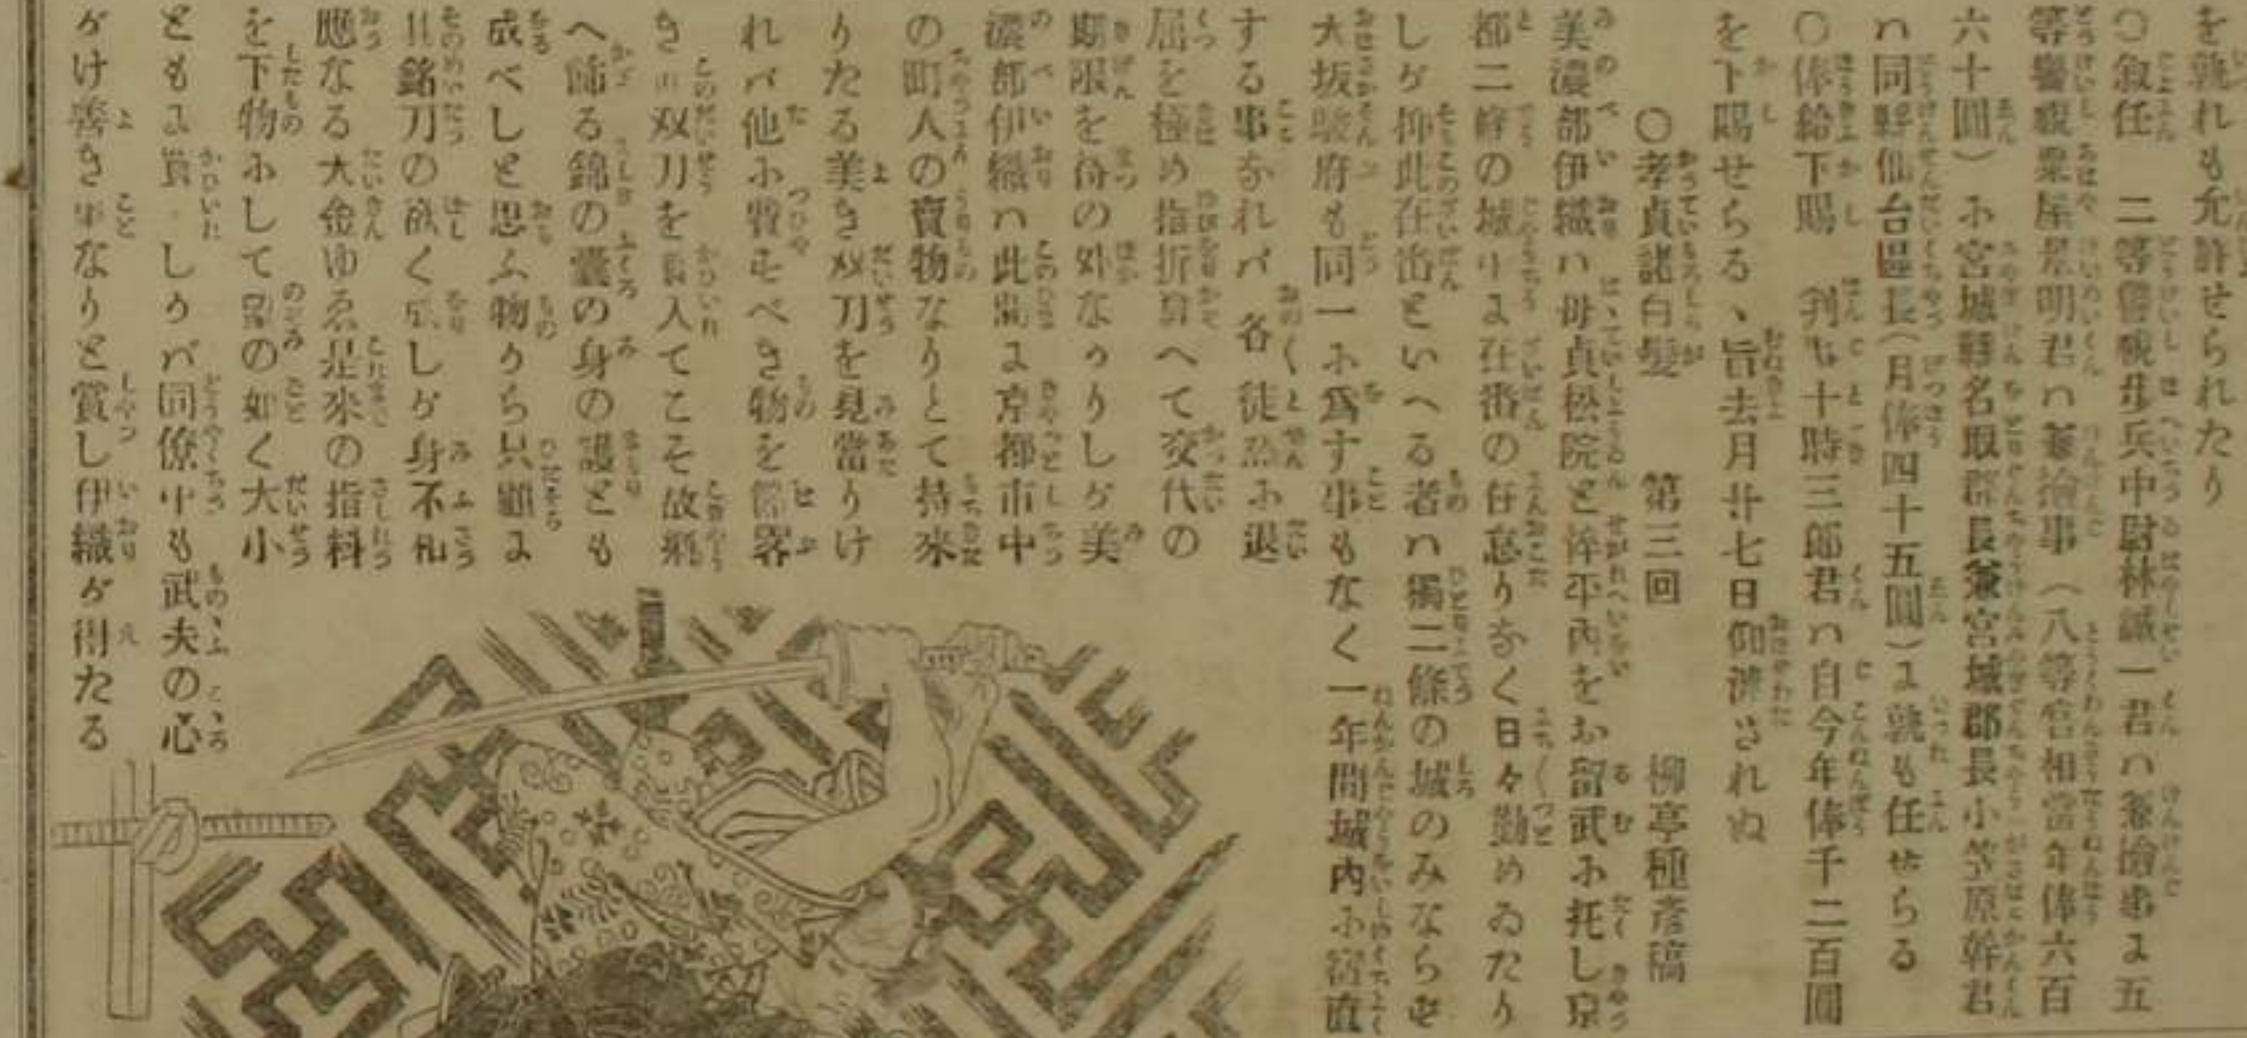 を孰れも允許せられたり
○叙任　二等警視歩兵中尉林誠一君ハ兼檢事ヱ五
等警視衆屋明君ハ兼檢事（八等官相當年俸六百
六十圓）ふ宮城縣名取郡長兼宮城郡長小笠原幹君
ハ同縣仙台區長（月俸四十五圓）ヱ孰も任せらる
○俸給下賜　判事十時三郎君ハ自今年俸千二百圓
を下賜せらるゝ旨去月廿七日仰渡されぬ
○孝貞諸白髪　第三回　柳亭種彦稿
美濃部伊織ハ母貞松院と悴平内をお留武ふ托し京
都二條の城中ヱ在番の任怠りなく日々勤めゐたり
しが抑此在番といへる者ハ獨二條の城のみならず
大坂駿府も同一ふ為す事もなく一年間城内ふ宿直
する事なれバ各々徒然ふ退
屈を極め指折算へて交代の
期限を待の外なかりしが美
濃部伊織ハ此間ヱ京都市中
の町人の賣物なりとて持來
りたる美き双刀を見當りけ
れバ他ふ費すべき物を器
き此双刀を買入てこそ故郷
へ飾る錦の嚢の身の護とも
成べしと思ふ物から只顧ヱ
其銘刀の欲く成しが身不相
應なる大金ゆゑ是迄の指料
を下物ふして望の如く大小
ともヱ買しかバ同僚中も武夫の心
がけ善き事なりと賞し伊織が得たる